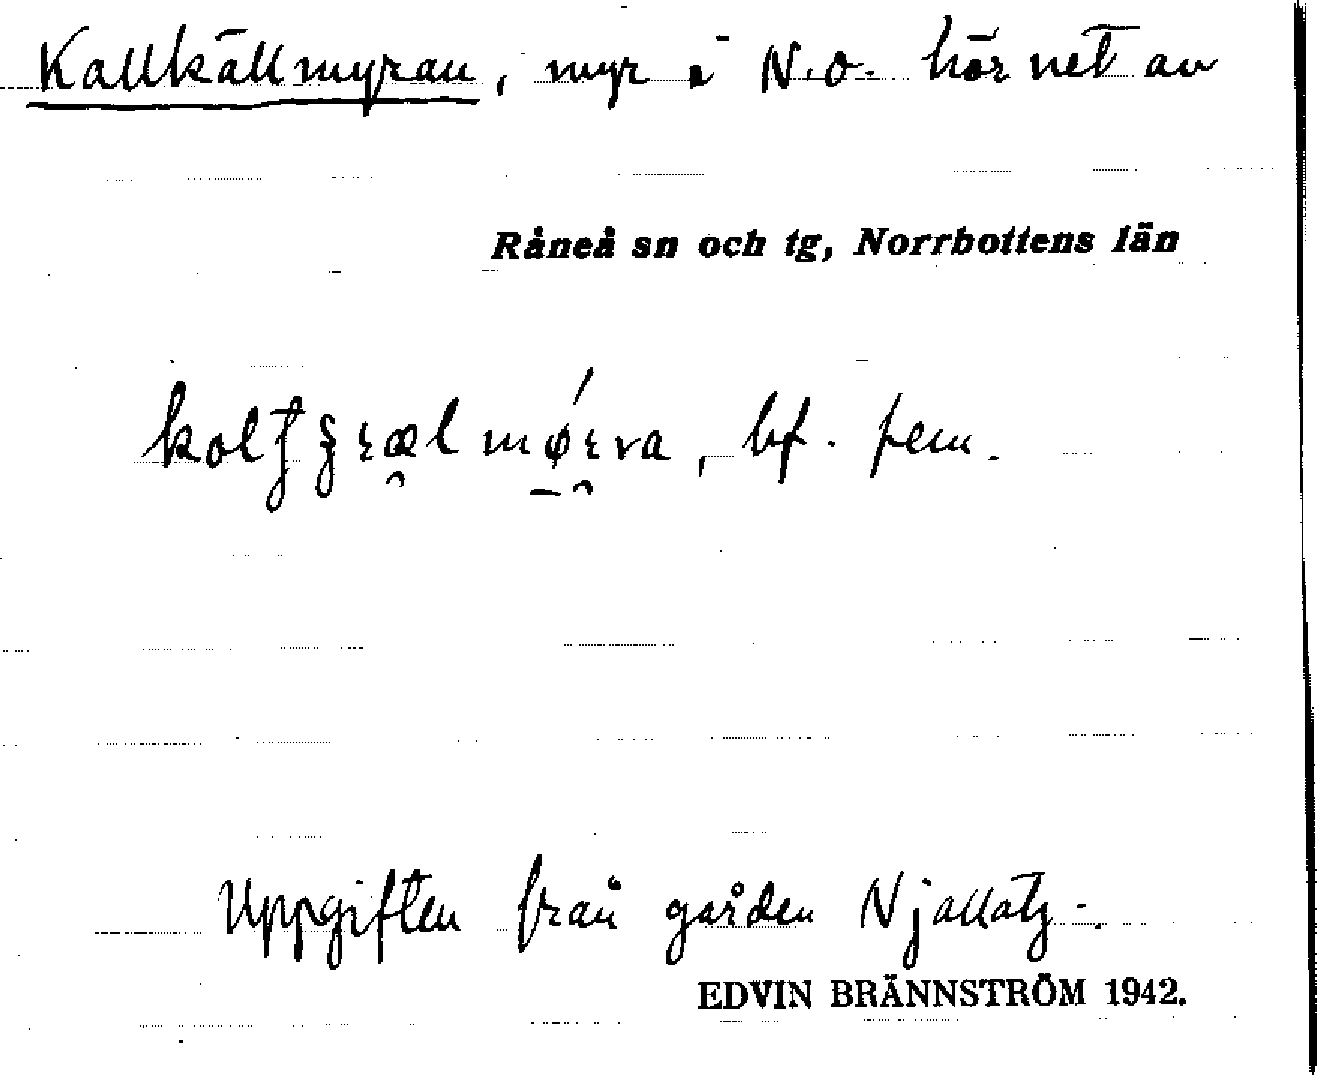 Kallkällmyran, myr i N.O. hörnet av
Råneå sn och tg, Norrbottens län
bf. fem.
Uppgiften från gården Njallatj.
EDVIN BRÄNNSTRÖM 1942.